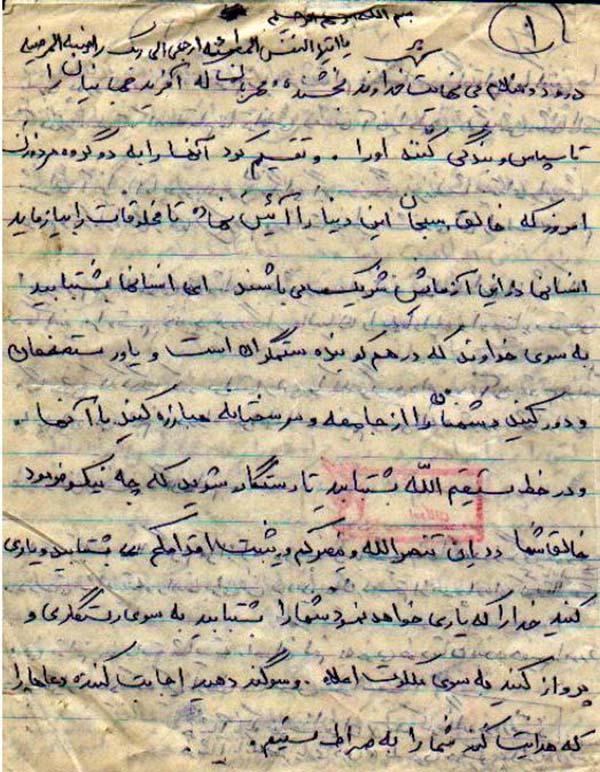 بسم الله الرحمن الرحیم
۱
یا ایتها النفس المطمئنه ارجعی الی ربک راضیه المرضیه
درود و سلام بی نهایت خداوند بخشنده و مهربان که آفرید جهانیان را
تا سپاس و بندگی کنند او را . و تقسیم کرد آنها را به دو گروه مرد و زن
امروز که خالق سبحان این دنیا را آئین نهاد تا مخلوقات را بیازماید
انسانها در این آزمایش شریک می باشند ای انسانها بشتابید
به سوی خداوند که در هم کوبنده ستمگران است و یاور مستضعفان
و دور کنید دشمنان را از جامعه و سر سختانه مبارزه کنید با آنها .
و در خط مستقیم الله بشتابید تا رستگار شوید که چه نیکو فرمود
خالق شما ان تنصر الله ینصرکم و یثبت اقدامکم بشتابید و یاری
کنید خدا را که یاری خواهد نمود شما را بشتابید به سوی رستگاری و
پرواز کنید به سوی ملکوت اعلاء . و سوگند دهید اجابت کننده دعاها را
که هدایت کند شما را به صراط مستقیم .